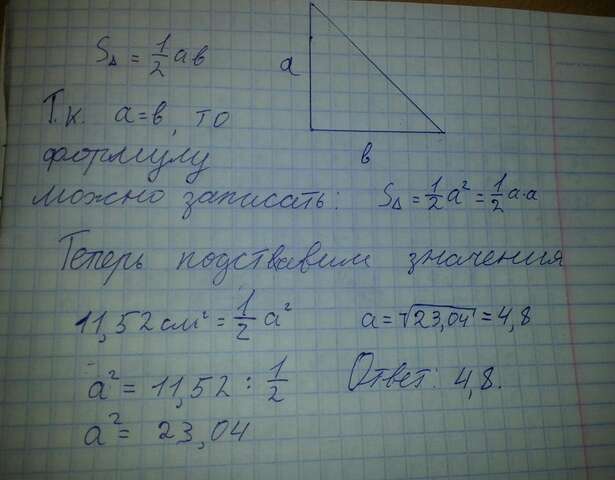 S∆ = 1/2 ab
a
b
Т.к. a=b, то
формулу
можно записать: S∆ = 1/2 a² = 1/2 a·a
Теперь подставим значения
11,52 см² = 1/2 a²
a = √23,04 = 4,8
a² = 11,52 : 1/2
Ответ: 4,8.
a² = 23,04